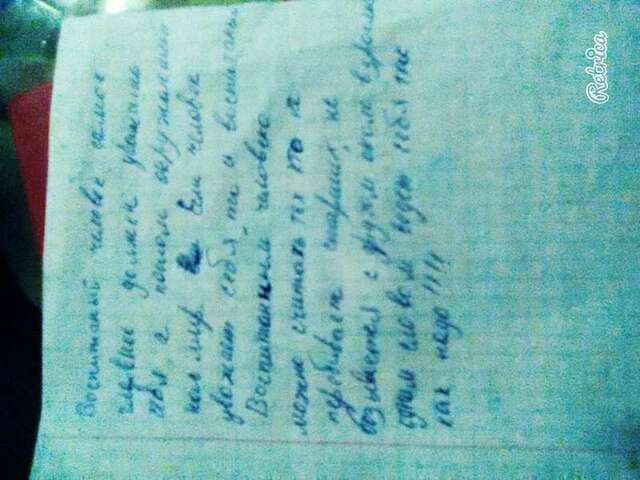 Воспитаный человек самое
главное должен уважать
себя, а потом окружающий
нас мир. Если человек
уважает себя то и воспитаный
Воспитанным человека
можно считать тех кто не
перебивает старших, не
обзывается с другом около взрослых
одним словом ведет себя так
как надо!!!!
Retrica